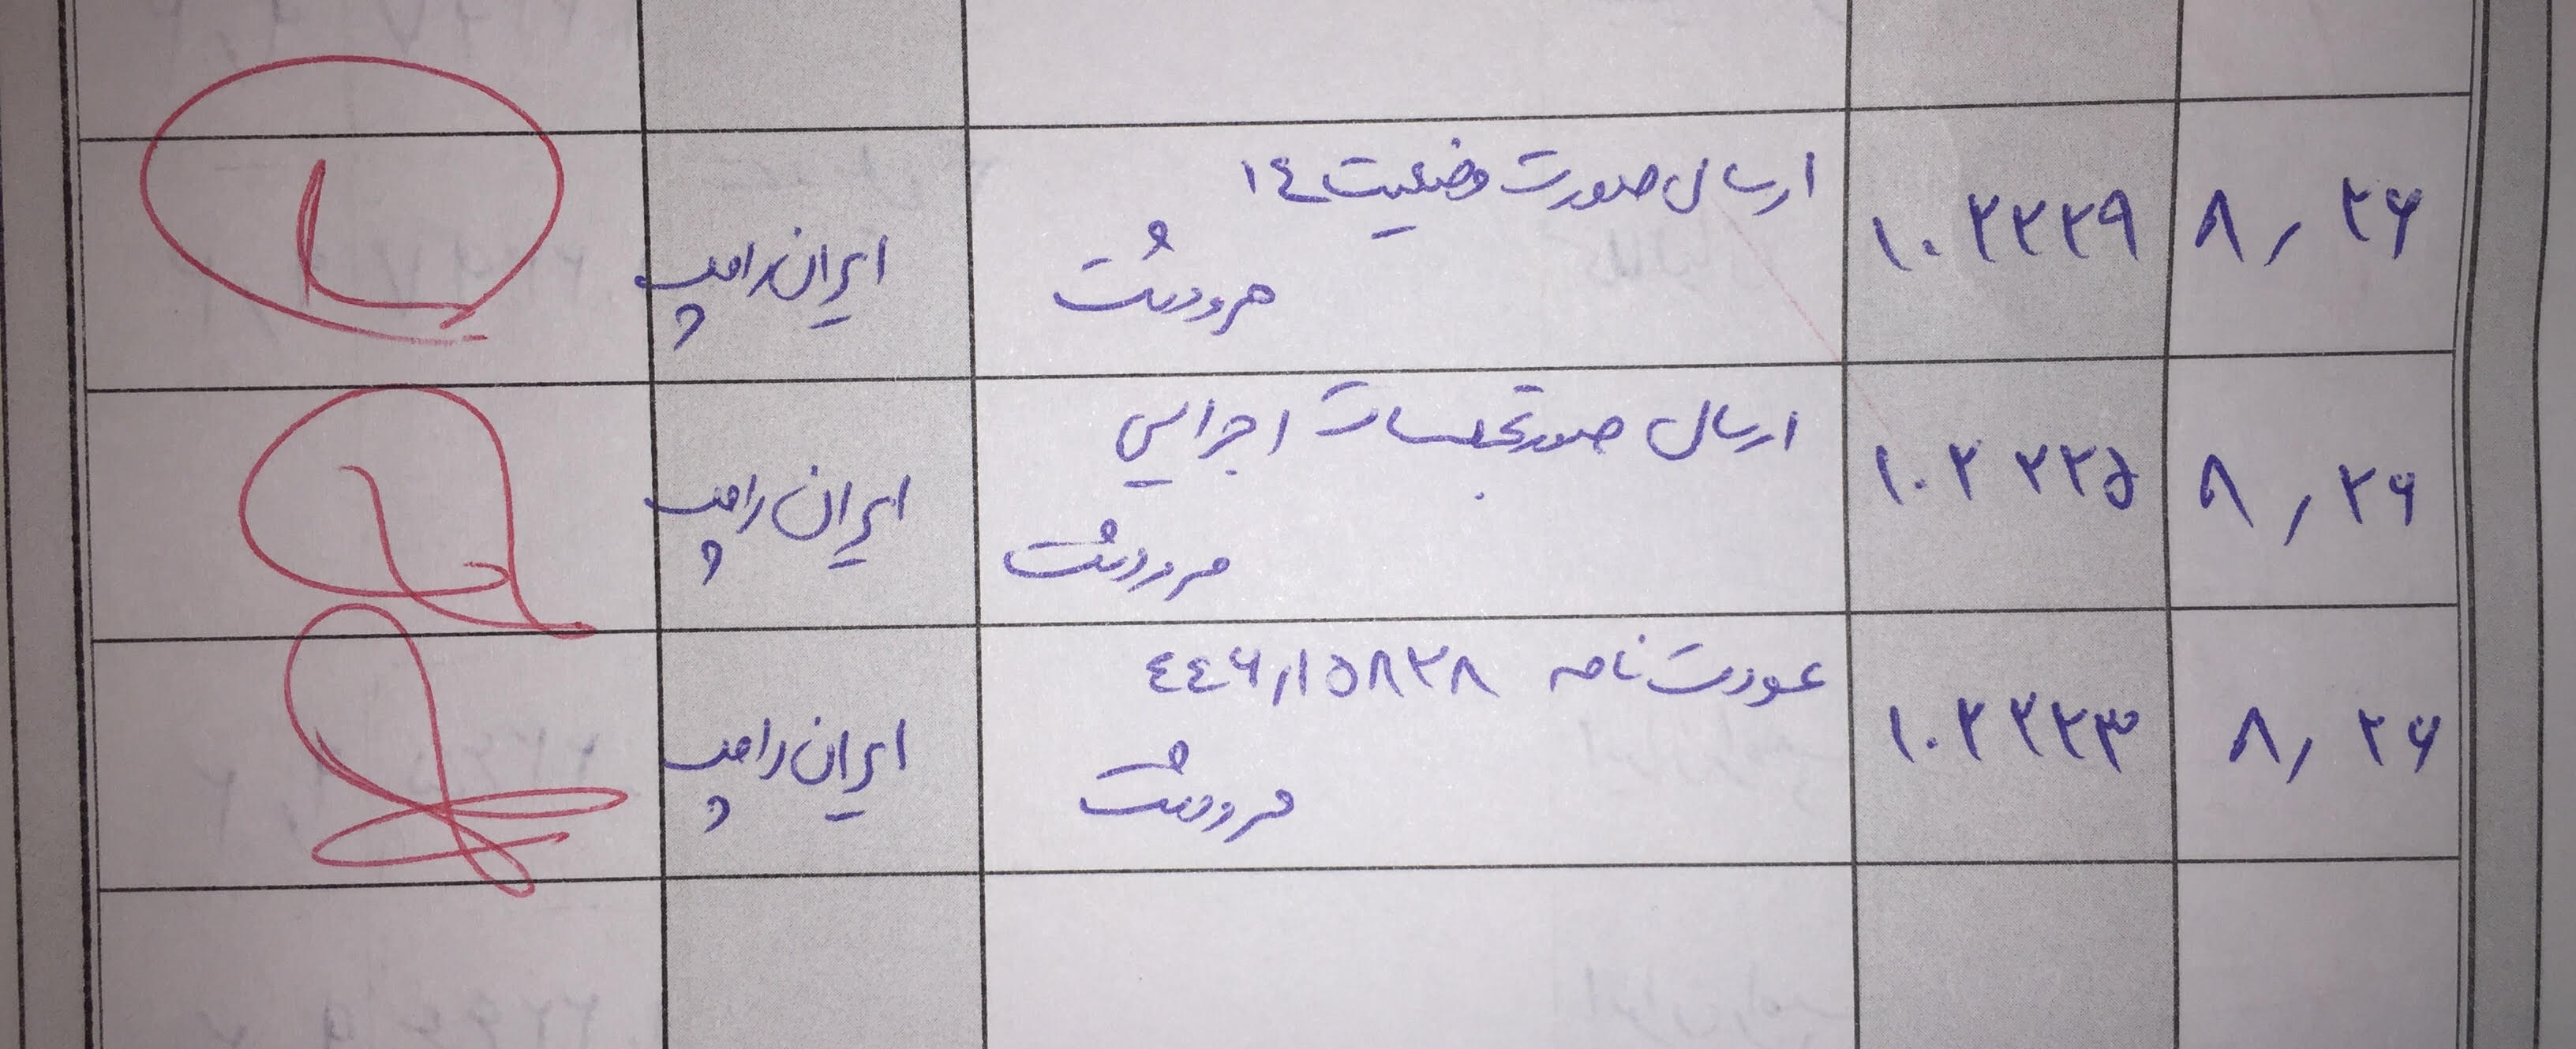 ۸/۲۶
۱۰۲۲۲۹
ارسال صورت وضعیت ۱٤
مرودشت
ایران رامپ
۸/۲۶
۱۰۲۲۲۵
ارسال صورتجلسات اجرایی
مرودشت
ایران رامپ
۸/۲۶
۱۰۲۲۲۳
عودت نامه ٤٤۶/۱۵۸۲۸
مرودشت
ایران رامپ